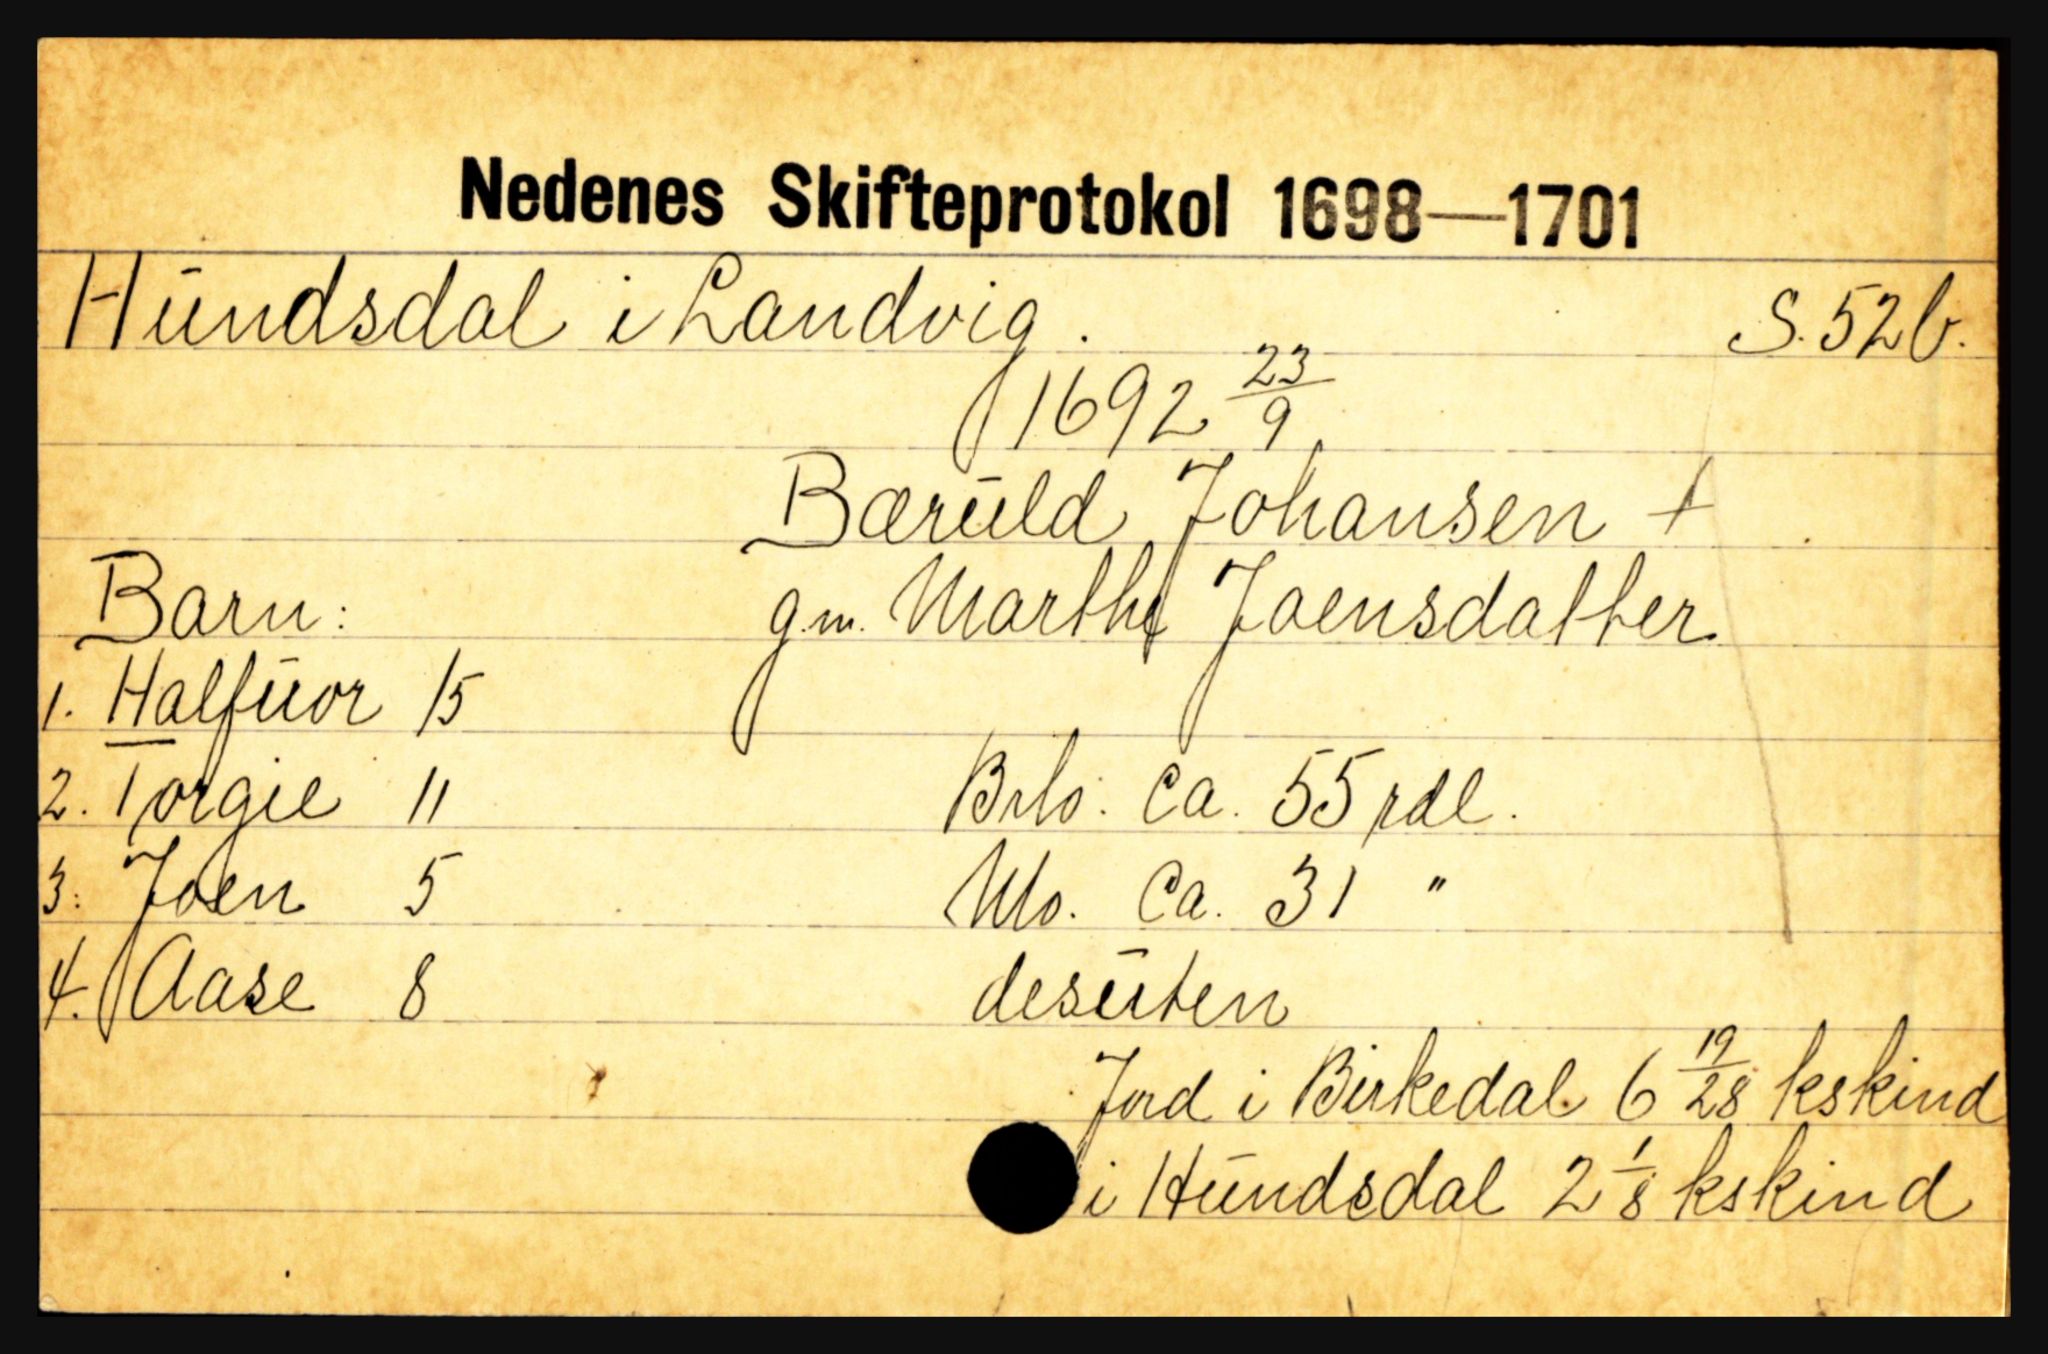 Nedenes Skifteprotokol 1698—1701
Hündsdal i Landvig. S. 52 b.
1692 23/9
Bærüld Johansen +
g.m. Marthe Joensdatter
Barn:
1. Halfüor 15
2. Torgie 11
3. Joen 5
4. Aase 8
Brlo. ca. 55 rdl.
Nlo. ca. 31 "
desüten
Jord i Birkedal 6 19/28 kskind
i Hündsdal 2 1/8 kskind